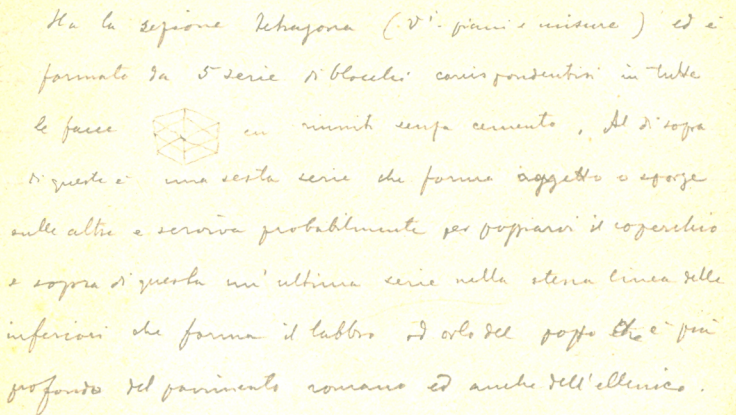 Ha la sezione tetragona (. V'. piani e misure) ed è
formato da 5 serie di blocchi corrispondentisi in tutte
le facce riuniti senza cemento. Al di sopra
di queste è una sesta serie che forma aggetto o sporge
sulle altre e serviva probabilmente per poggiarvi il coperchio
e sopra di questa un'ultima serie nella stessa linea delle
inferiori che forma il labbro ed orlo del pozzo che è più
profondo del pavimento romano ed anche dell'ellenico.